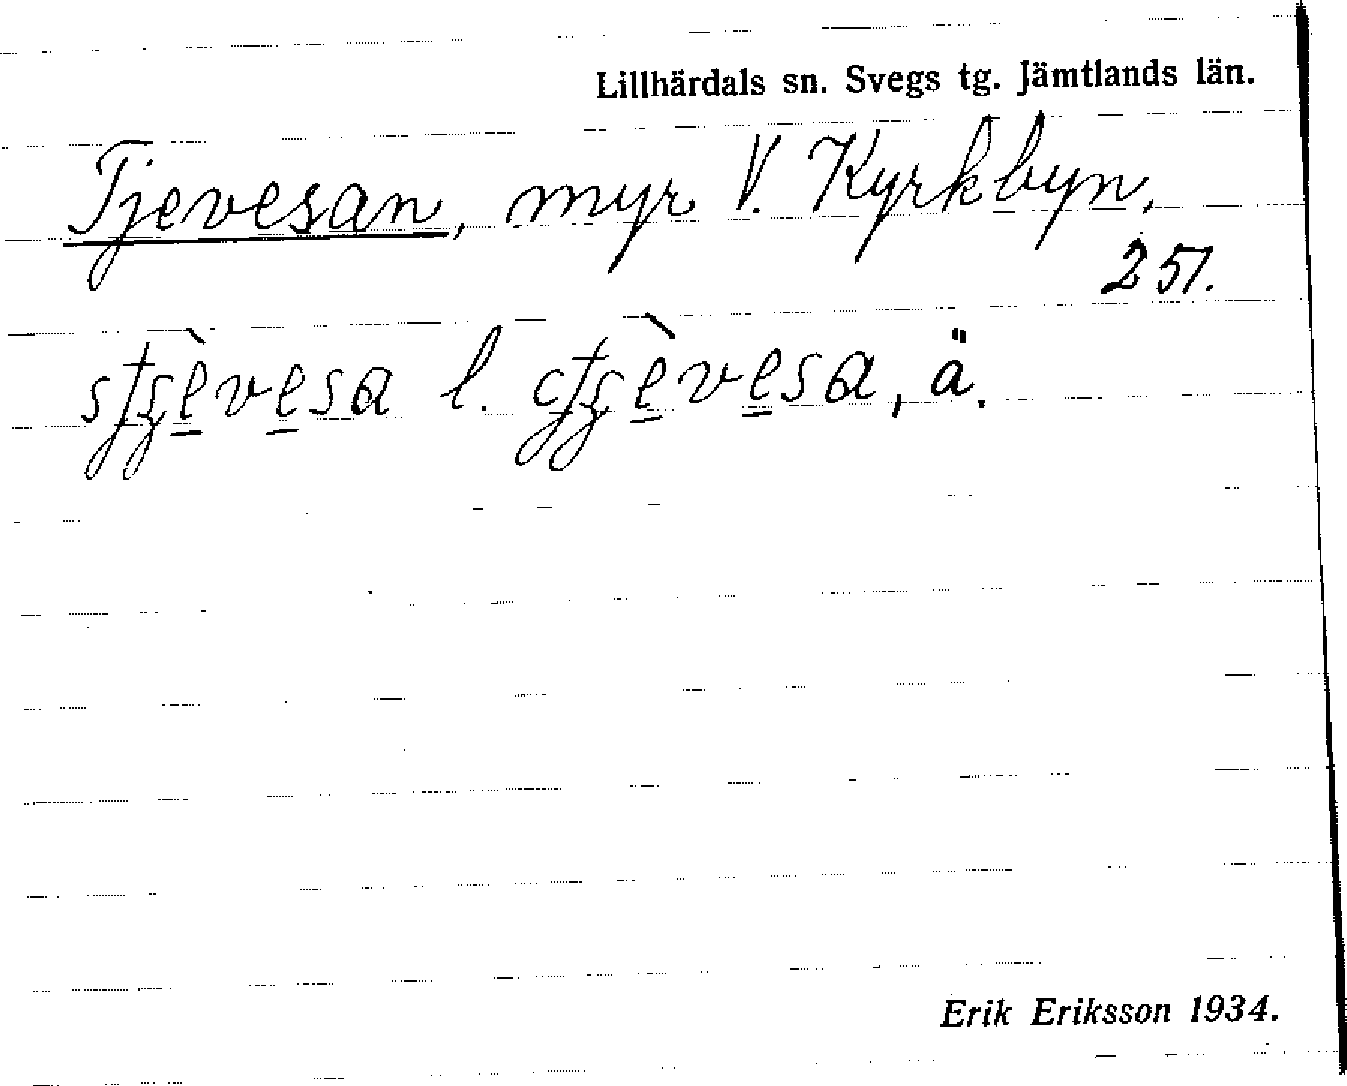 Lillhärdals sn. Svegs tg. Jämtlands län.
Tjevesan, myr V. Kyrkbyn,
251.
l. , ä.
Erik Eriksson 1934.